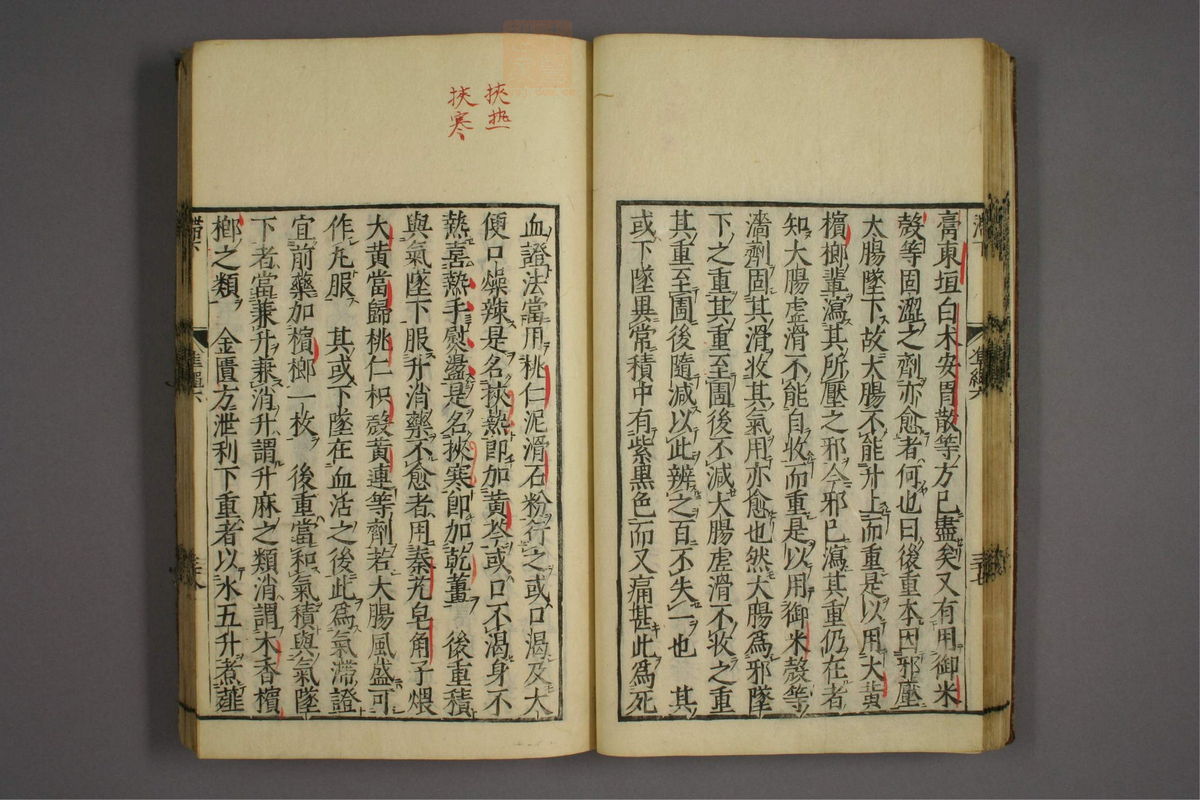 膏東垣白朮安胃散等方已盡矣又有用御米
殼等固澀之劑亦愈者何也曰後重本因邪壓
大腸墜下故大腸不能升上而重是以用大黃
檳榔輩瀉其所壓之邪今邪已瀉其重仍在者
知大腸虛滑不能自收而重是以用御米殼等
濇劑固其滑收其氣用亦愈也然大腸爲邪墜
下之重其重至圊後不減大腸虛滑不收之重
其重至圊後隨減以此辨之百不失一也 其
或下墜異常積中有紫黑色而又痛甚此爲死
挾热
挾寒
血證法當用桃仁泥滑石粉行之或口渴及大
便口燥辣是名挾熱即加黃芩或口不渴身不
熱喜熱手熨盪是名挾寒即加乾薑 後重積
與氣墜下服升消藥不愈者用秦艽皂角子煨
大黃當歸桃仁枳殼黃連等劑若大腸風盛可
作丸服 其或下墜在血活之後此爲氣滯證
宜前藥加檳榔一枚 後重當和氣積與氣墜
下者當兼升兼消升謂升麻之類消謂木香檳
榔之類 金匱方泄利下重者以水五升煮薤